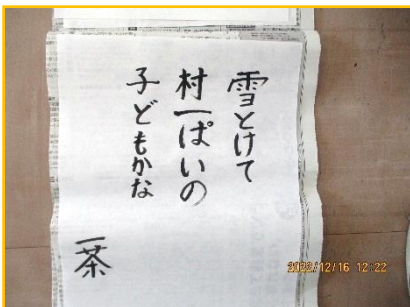 雪とけて
村一ぱいの
子どもかな
一茶
2022/12/16 12:22